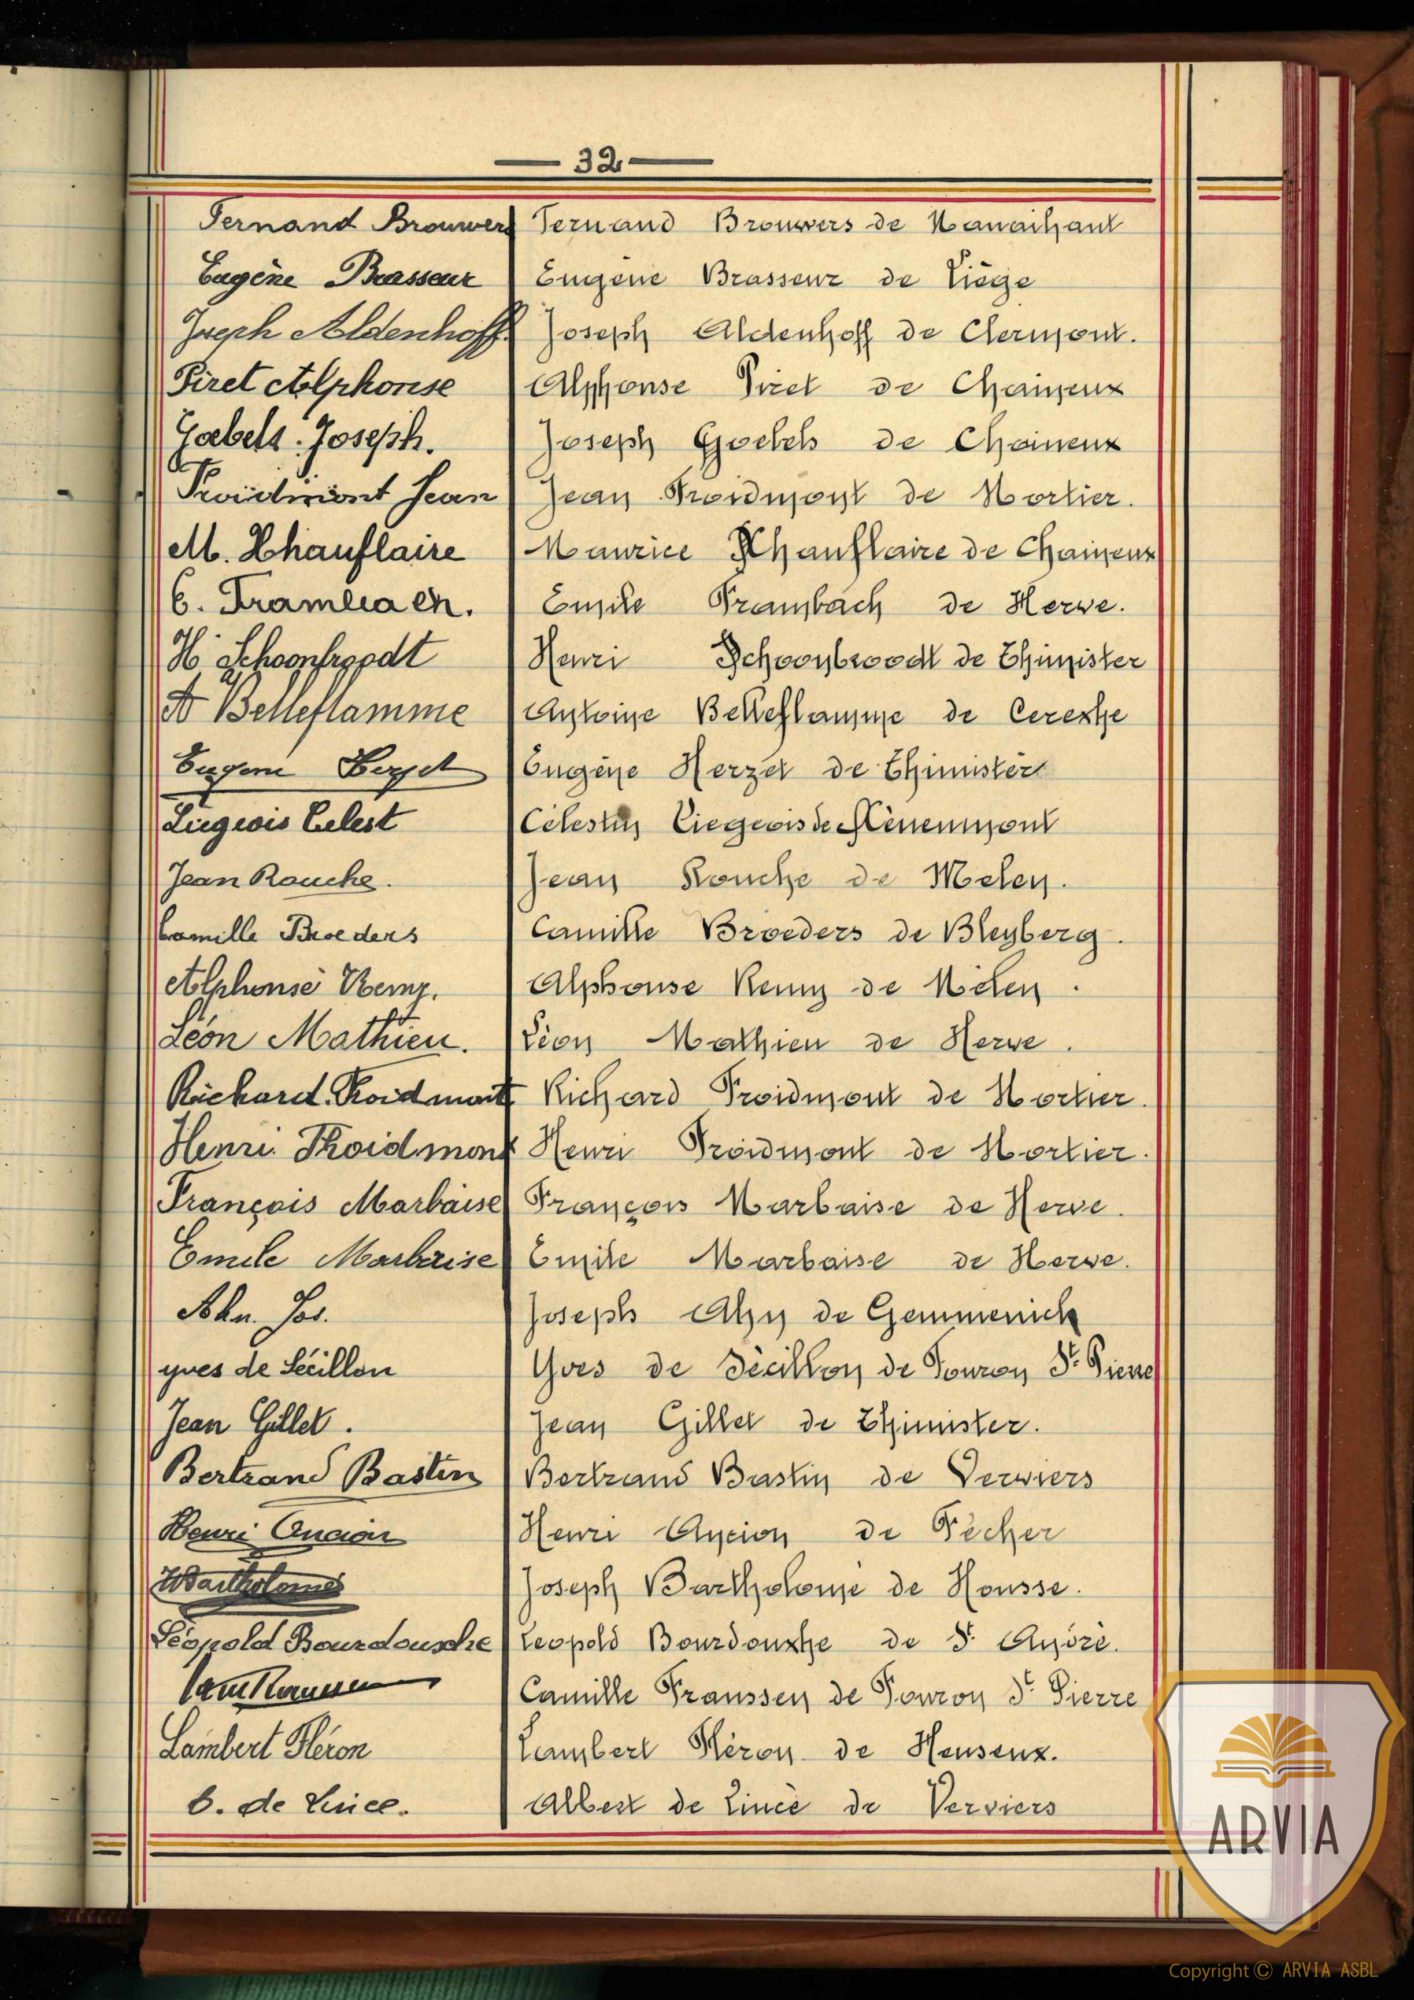 32
Fernand Brouwers Fernand Brouwers de Manaihant
Eugène Brasseur Eugène Brasseur de Liège
Joseph Aldenhoff. Joseph Aldenhoff de Clermont.
Piret Alphonse Alphonse Piret de Chaineux
Goebels. Joseph. Joseph Goebels de Chaineux
Froidmont Jean Jean Froidmont de Mortier.
M. Xhauflaire Maurice Xhauflaire de Chaineux
E. Frambach. Emile Frambach de Herve.
H. Schoonbroodt Henri Schoonbroodt de Thimister
A Belleflamme Antoine Belleflamme de Cerexhe
Eugène Herzet Eugène Herzet de Thimister
Liegeois Celest Célestin Liegeois de Xhénemont
Jean Rouche. Jean Rouche de Melen.
Camille Broeders Camille Broeders de Bleyberg.
Alphonse Remy. Alphonse Remy de Mélen.
Léon Mathieu. Léon Mathieu de Herve.
Richard. Froidmont Richard Froidmont de Mortier.
Henri Froidmont Henri Froidmont de Mortier.
François Marbaise François Marbaise de Herve.
Emile Marbaise Emile Marbaise de Herve.
Ahn. Jos. Joseph Ahn de Gemmenich
yves de Sécillon Yves de Sécillon de Fouron St. Pierre
Jean Gillet. Jean Gillet de Thimister.
Bertrand Bastin Bertrand Bastin de Verviers
Henri Ancion Henri Ancion de Fècher
JBartholomé Joseph Bartholomé de Housse.
Léopold Bourdouxhe Leopold Bourdouxhe de St. André.
Camille Franssen de Fouron St. Pierre
Lambert Fléron Lambert Fléron de Heuseux.
de Lince. Albert de Lincé de Verviers
ARVIA
Copyright © ARVIA ASBL